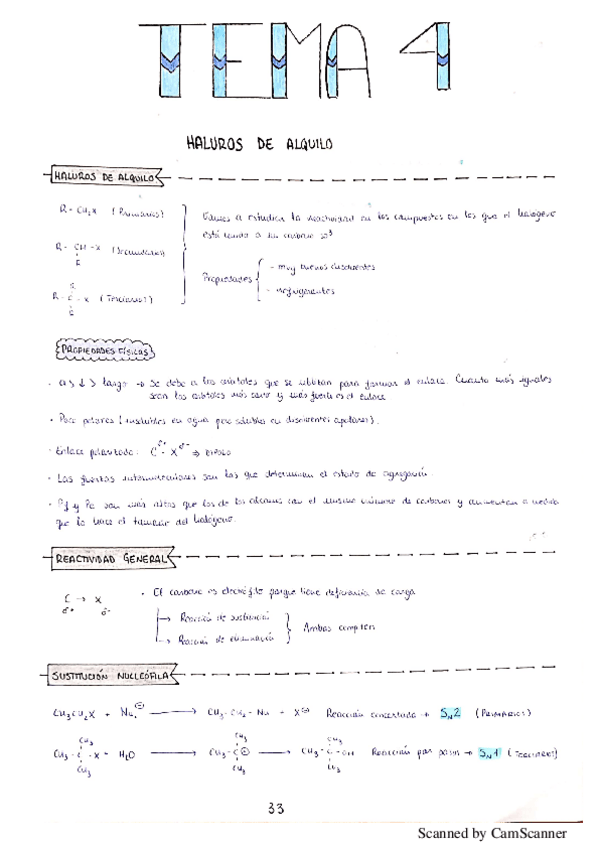 TEMA 4
HALUROS DE ALQUILO
HALUROS DE ALQUILO
R - CH₂X (Primarios)
R - CH - X (Secundarios)
R
R
R - C - X (Terciarios)
R
Vamos a estudiar la reactividad en los compuestos en los que el halógeno
está unido a un carbono sp³
Propiedades
- muy buenos disolventes
- refrigerantes
PROPIEDADES FÍSICAS
largo → Se debe a los orbitales que se utilizan para formar el enlace. Cuanto más iguales
sean los orbitales más corto y más fuerte es el enlace
· Poco polares (insolubles en agua pero solubles en disolventes apolares).
· Enlace polarizado: C δ+ - X δ- ⇒ DIPOLO
· Las fuerzas intermoleculares son las que determinan el estado de agregación.
· Pf y Pe son más altos que los de los alcanos con el mismo número de carbonos y aumentan a medida
que lo hace el tamaño del halógeno.
REACTIVIDAD GENERAL
C → X
δ+ δ-
· El carbono es electrófilo porque tiene deficiencia de carga
→ Reacción de sustitución
→ Reacción de eliminación
Ambas compiten
SUSTITUCIÓN NUCLEÓFILA
CH₃CH₂X + Nu:⊖ → CH₃-CH₂-Nu + X⊖ Reacción concertada → SN2 (Primarios)
CH₃ CH₃ CH₃
CH₃-C-X + H₂O → CH₃-C⊕ → CH₃-C-OH Reacción por pasos → SN1 (Terciarios)
CH₃ CH₃ CH₃
33
Scanned by CamScanner